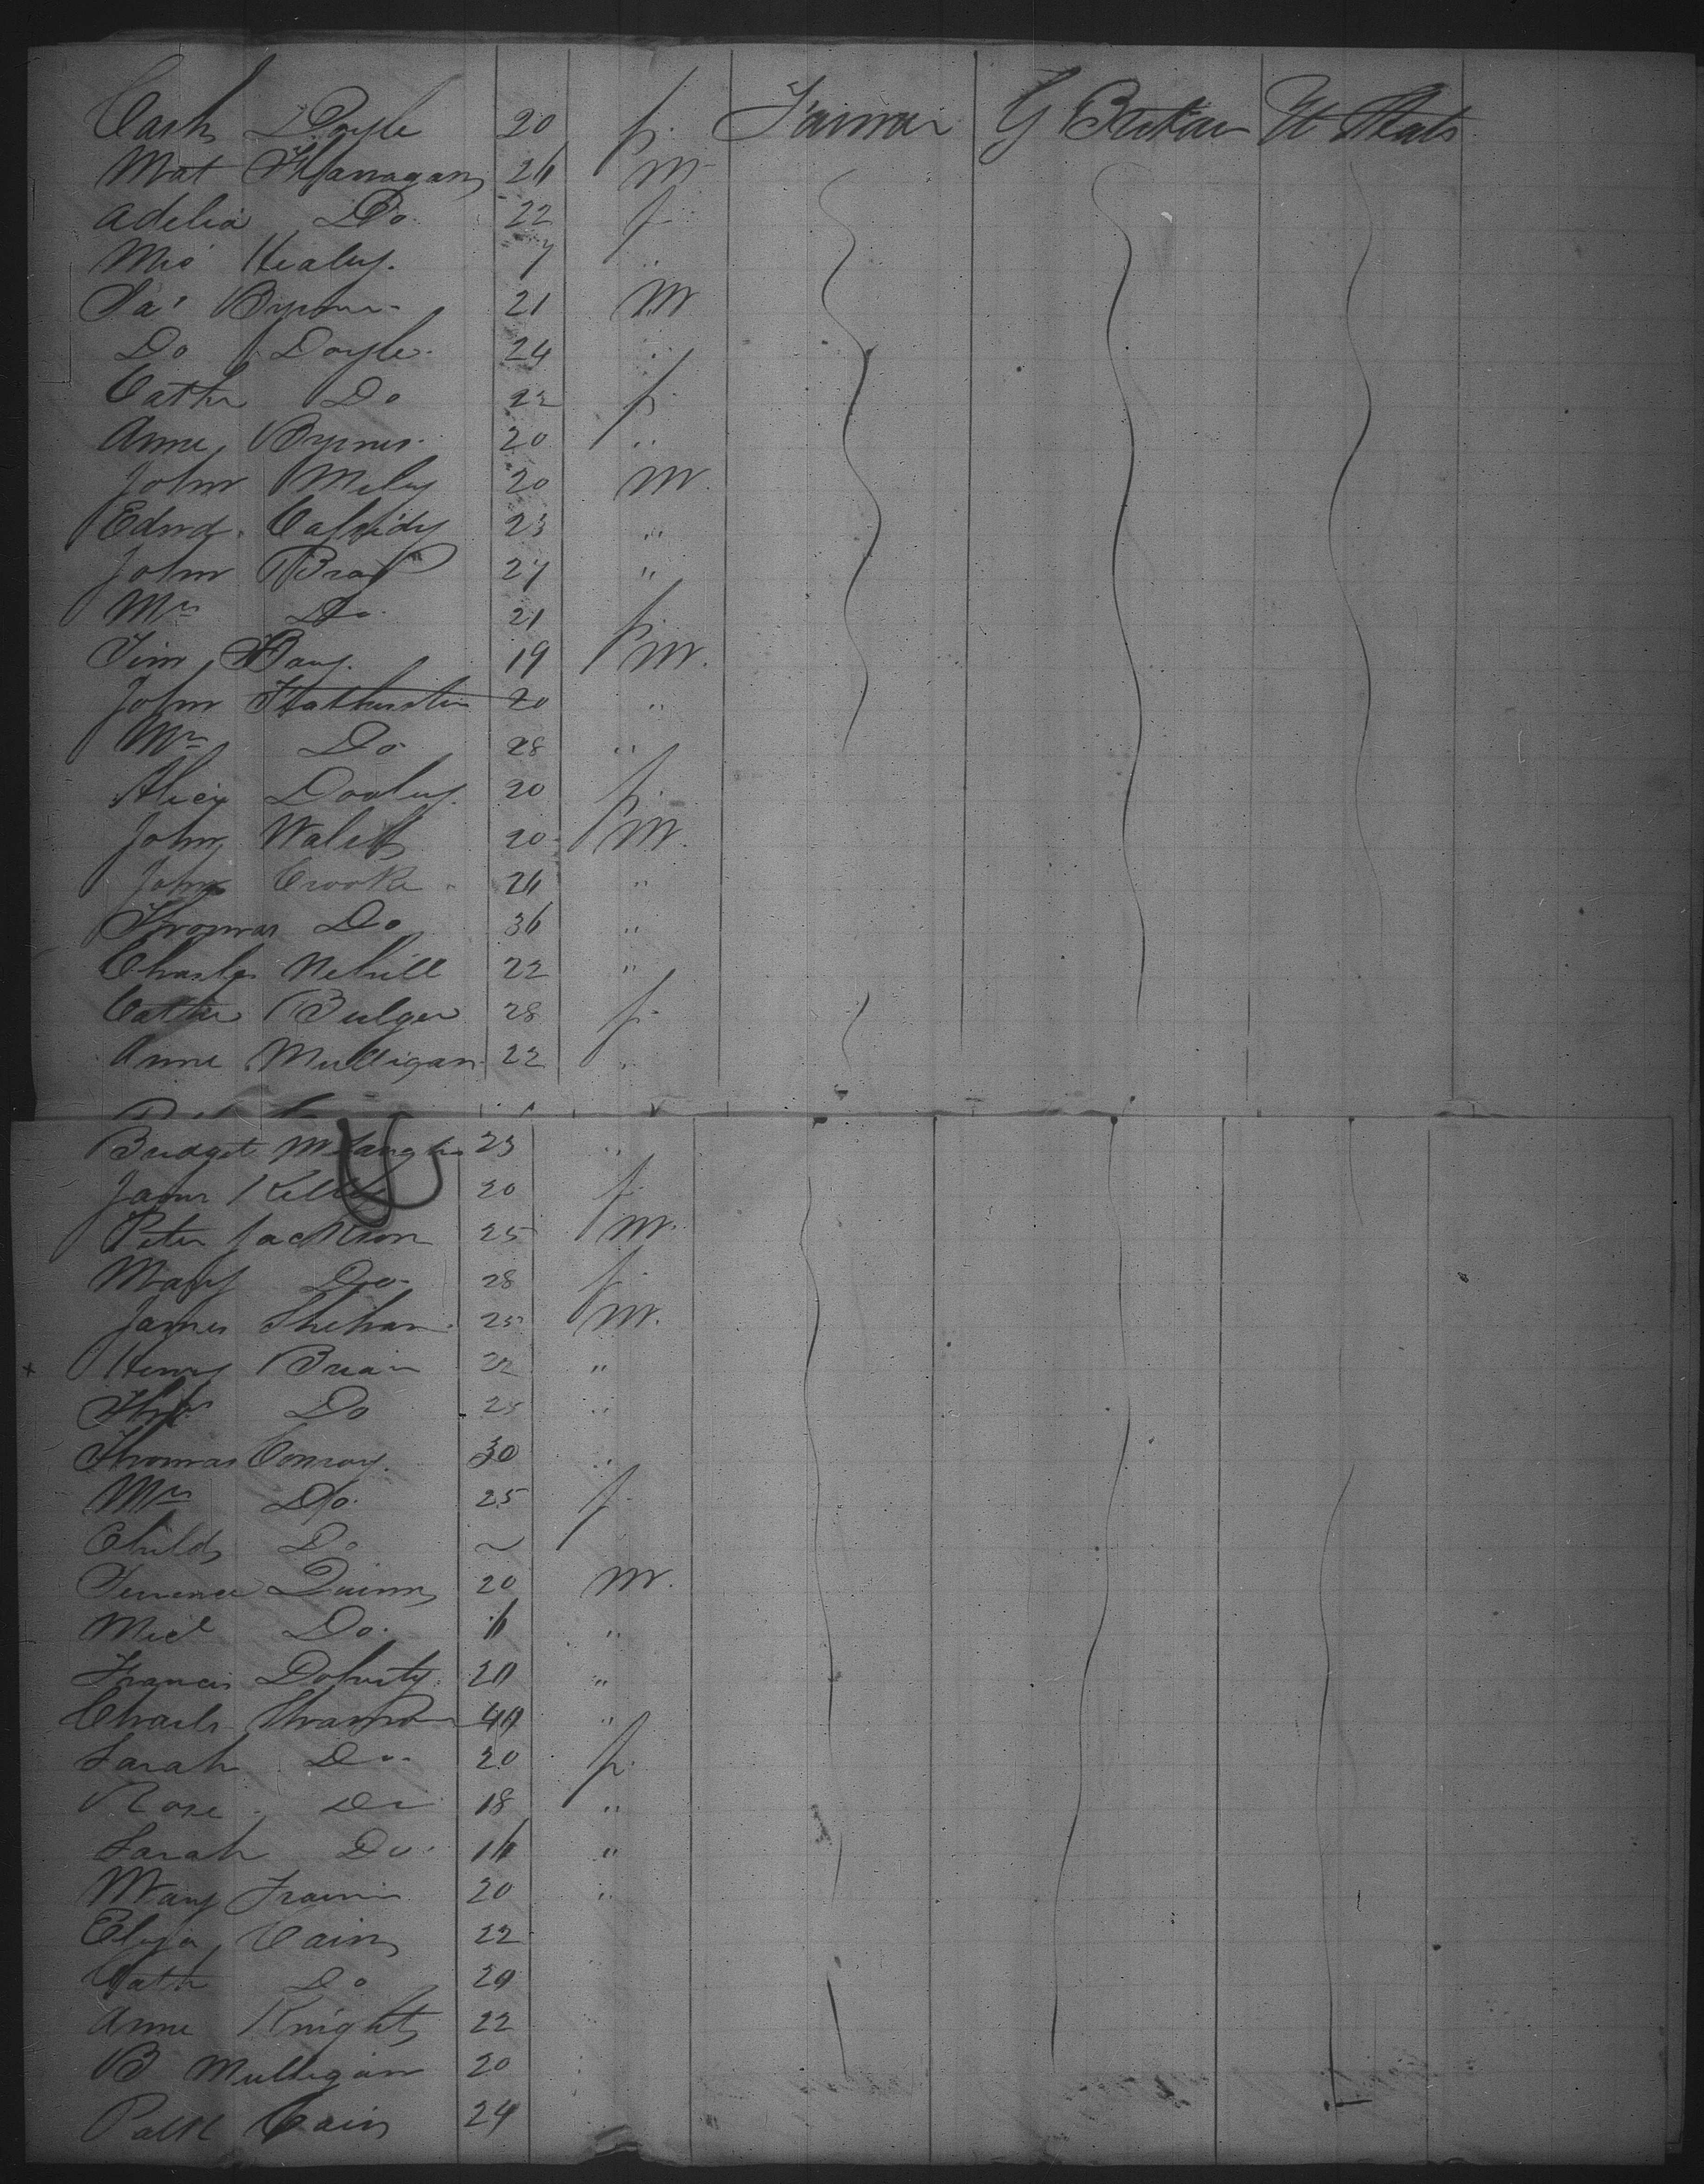 Cath Doyle 20 f. Farmer G Britain U States
Mat Flanagan 26 m
Adelia Do 22 f
Healey. 7 "
Ja's Byrne 21 m
Do Doyle 24 "
Cathe Do 22 f
Anne Byrnes 20 "
John 20 m.
Edwd. Cassidy 23 "
John Bray 27 "
Mrs Do 21 f
Tim 19 m.
John 20 "
Mrs Do 28 "
Alicy Dooley 20 f.
John Walsh 20 m.
John Crooke 26 "
Thomas Do 36 "
Charles Nehill 22 "
Cathe Bulger 28 f
Anne Mulligan 22 "
Bridget 23 "
James Kelly 20 f
Peter Jackson 25 m.
Mary Do 28 f
James Shehan 25 m.
Henry Brian 22 "
Thos Do 25 "
Thomas Conroy. 30 "
Mrs Do. 25 f
Child Do ~
Terrence Quinn 20 m.
Micl Do. "
Francis Dohirty 20 "
Charls "
Sarah Do. 20 f.
Rose Do 18 "
Sarah Do. 16 "
Mary 20 "
Eliza Cain 22
Cath Do 20
Anne Knight 22
B Mulligan 20
Patk Cain 24